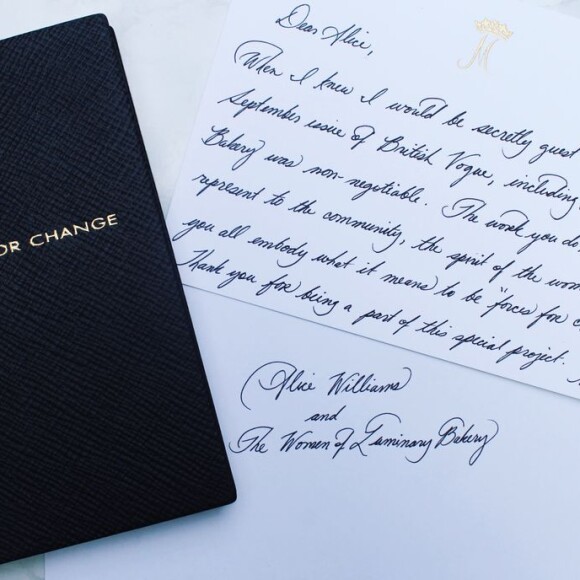 OR CHANGE
M
Dear Alice,
When I knew I would be secretly guest
September issue of British Vogue, including
Bakery was non-negotiable. The work you do
represent to the community, the spirit of the wom
you all embody what it means to be "forces for c
Thank you for being a part of this special project.
Alice Williams
and
The Women of Luminary Bakery